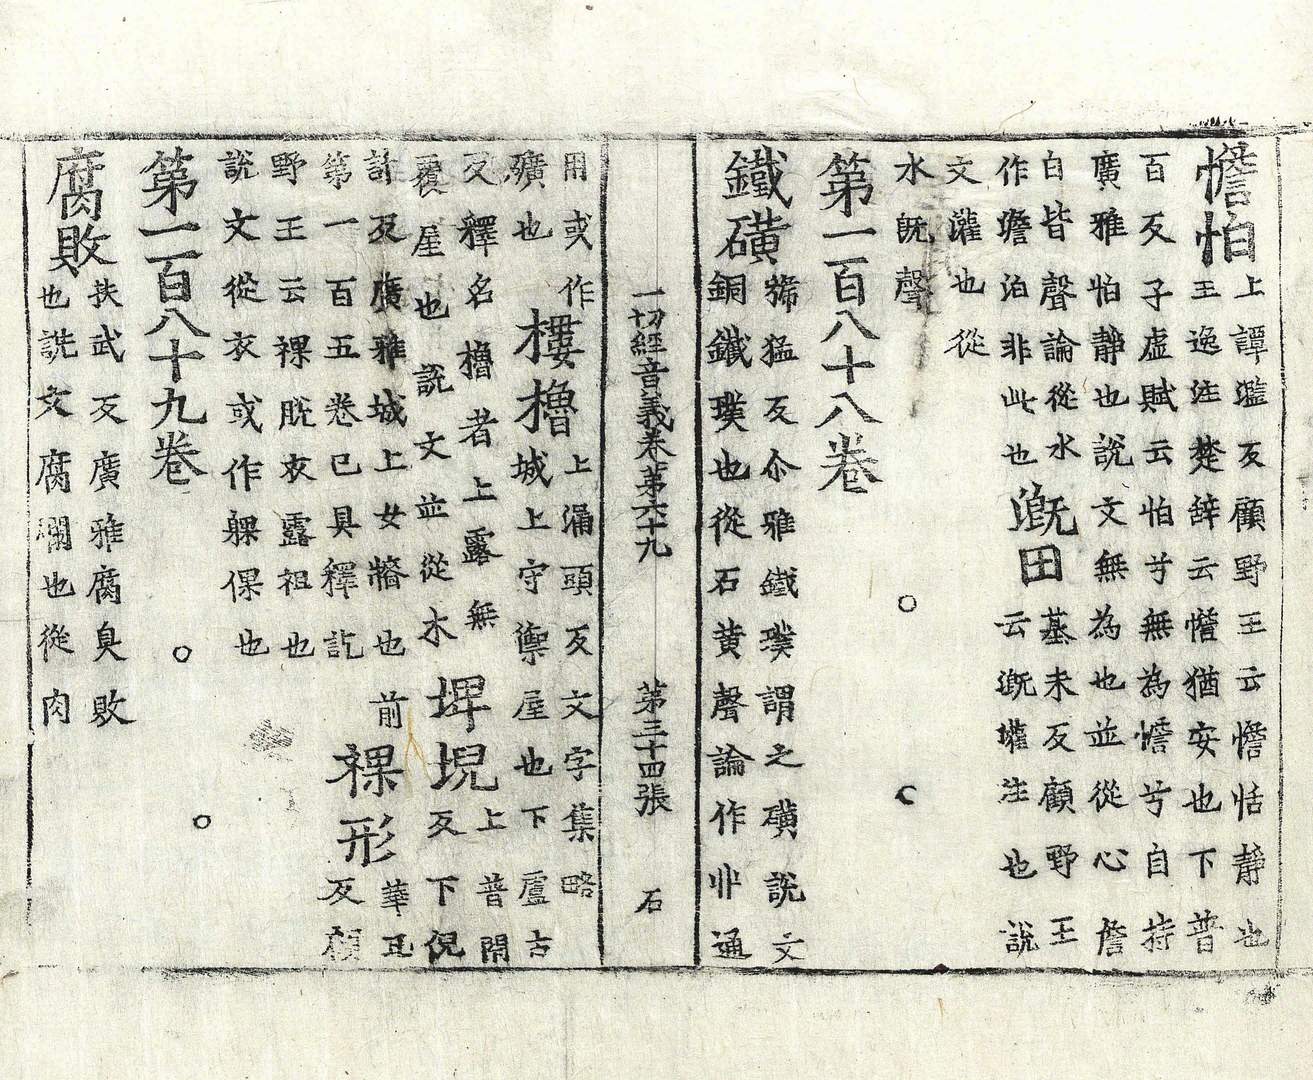 憺怕上譚濫反顧野王云憺恬靜也
王逸注楚辭云憺猶安也下普
百反子虛賦云怕兮無為憺兮自持
廣雅怕靜也說文無為也並從心詹
白皆聲論從水
作澹泊非此也
漑田墓未反顧野王
云漑灌注也說
文灌也從
水旣聲
第一百八十八卷
鐵礦虢猛反尒雅鐵璞謂之礦說文
銅鐵璞也從石黃聲論作丱通
一切經音義卷第六十九 第三十四張 石
用或作
礦也
樓櫓上漏頭反文字集略
城上守禦屋也下盧古
反釋名櫓者上露無
覆屋也說文並從木
埤堄上普閇
反下倪
計反廣雅城上女墻也前
第一百五卷已具釋訖
裸形華瓦
反顧
野王云裸脫衣露袒也
說文從衣或作躶倮也
第一百八十九卷
腐敗扶武反廣雅腐臭敗
也說文腐爛也從肉